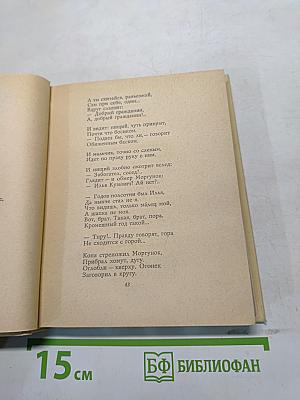 А ты скитайся, разъезжай,
Сам при себе, один...
Вдруг слышит:
— Добрый гражданин,
А, добрый гражданин!..
И видит: нищий, чуть прикрыт,
Почти что босиком.
— Подвез бы, что ли, — говорит
Обиженным баском.
И мальчик, точно со слепым,
Идет по праву руку с ним,
И нищий злобно смотрит вслед:
— Заботься, сосед!..
Глядит — и обмер Моргунок:
— Илья Кузьмич! Ай нет?..
— Годов полсотни был Илья,
Да нынче стал не я.
Что видишь, только малец мой,
А шапка не моя.
Вот, брат. Такая, брат, пора.
Кромешный год такой...
— Тпру!.. Правду говорят, гора
Не сходится с горой...
Коня стреножил Моргунок,
Прибрал хомут, дугу.
Оглобли — кверху. Огонек
Заговорил в кругу.
43
15 см
БФ БИБЛИОФАН